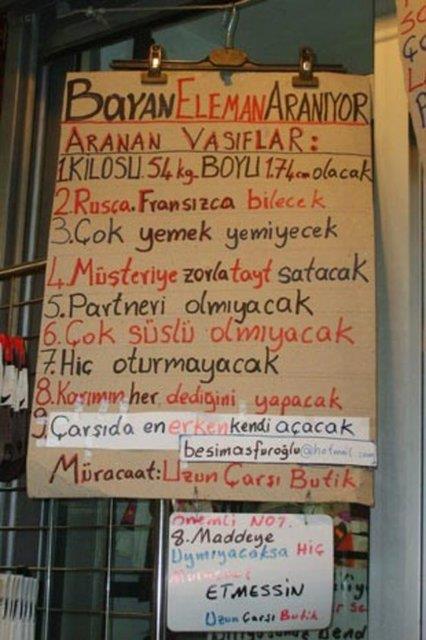 BAYAN ELEMAN ARANIYOR
ARANAN VASIFLAR:
1.KILOSU.54kg.BOYU 1.74cm olacak
2.Rusça.Fransızca bilecek
3.Çok yemek yemiyecek
4.Müşteriye zorla tayt satacak
5.Partneri olmıyacak
6.Çok süslü olmıyacak
7.Hiç oturmayacak
8.Karımın her dediğini yapacak
9 Çarsıda en erken kendi açacak
besimasfuroğlu@hotmail.com
Müracaat: Uzun Çarşı Butik
ÖNEMLİ NOT.
8.Maddeye
Uymıyacaksa HİÇ
ETMESSİN
Uzun Çarsı Butik